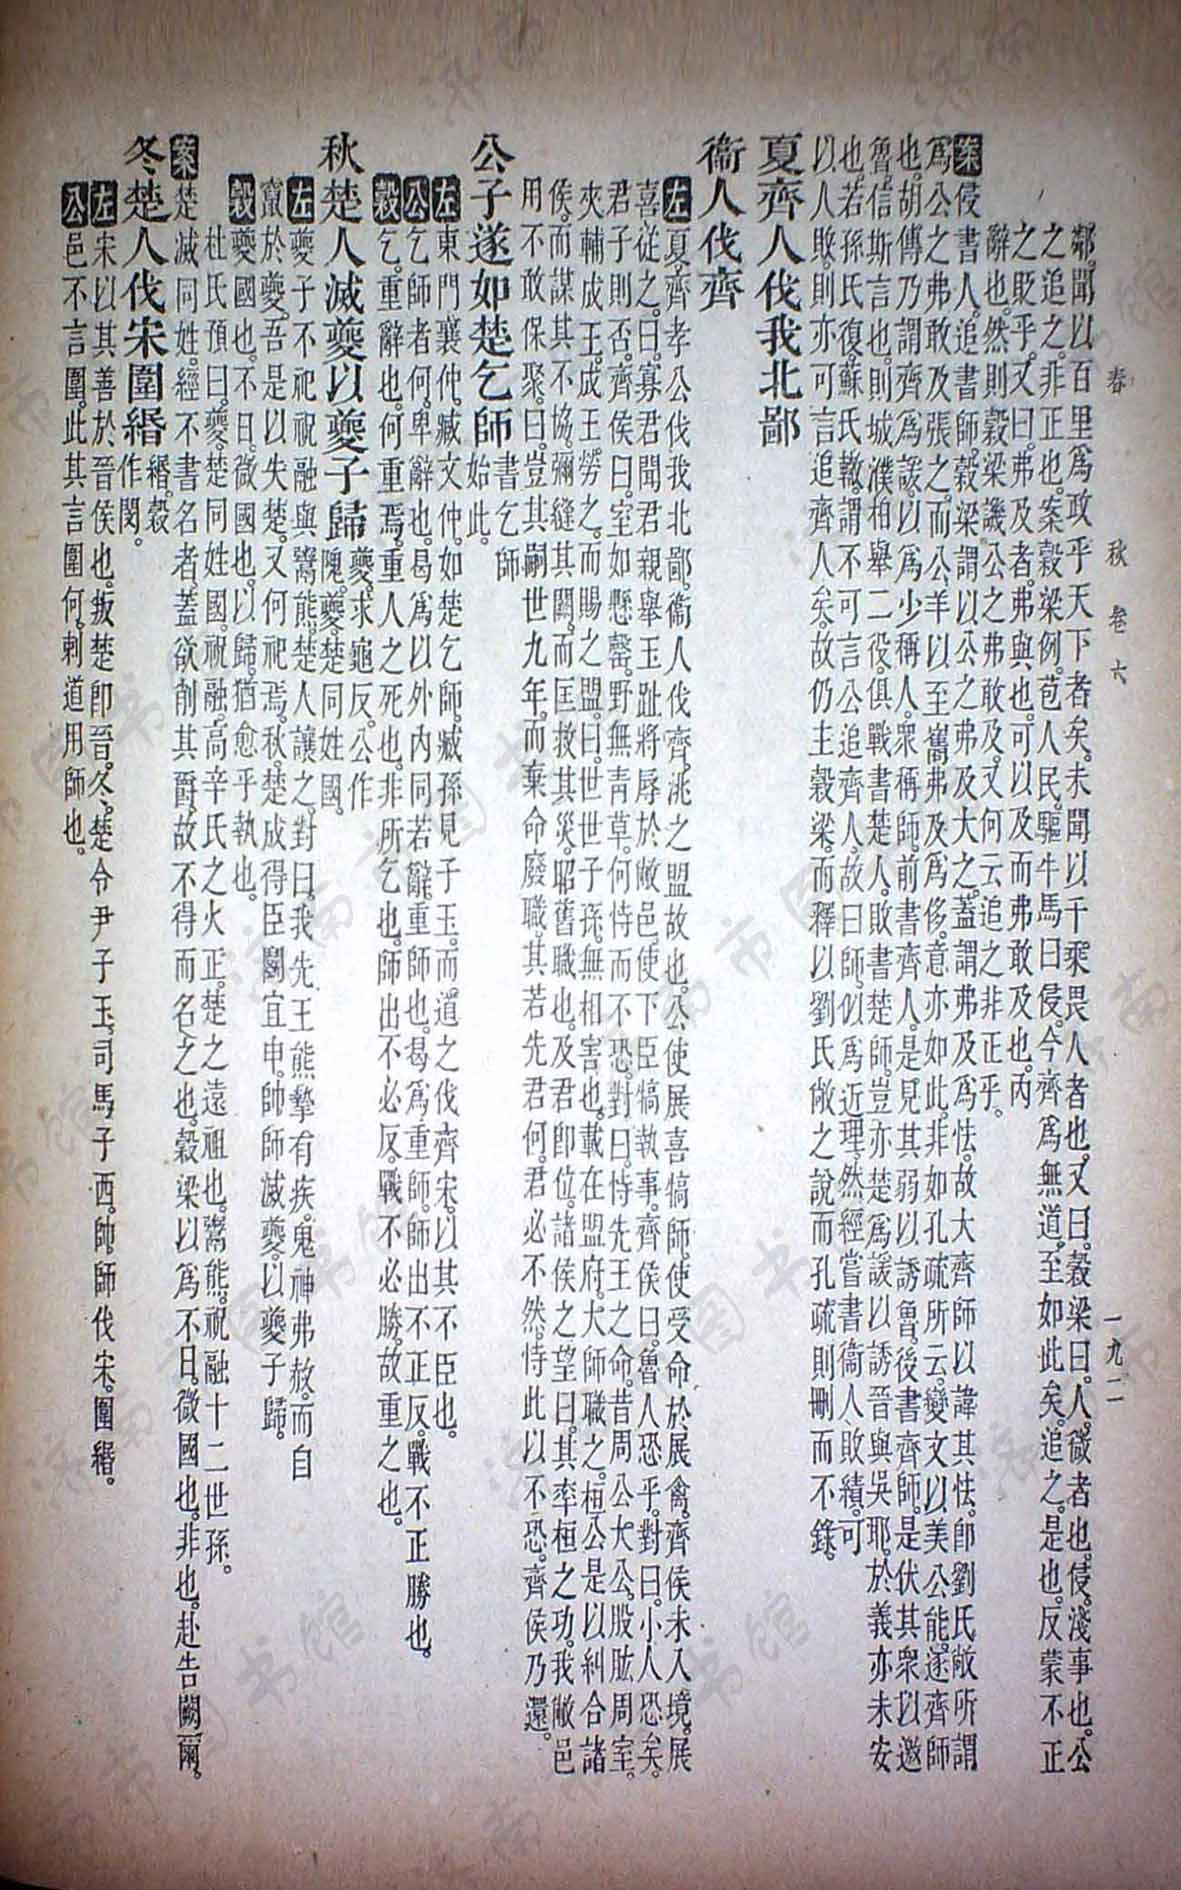 春　秋　卷六　一九二
鄰。聞以百里爲政乎天下者矣。未聞以千乘畏人者也。又曰。穀梁曰。人。微者也。侵。淺事也。公
之追之。非正也。案穀梁例。苞人民。驅牛馬曰侵。今齊爲無道。至如此矣。追之。是也。反蒙不正
之貶乎。又曰。弗及者。弗與也。可以及而弗敢及也。內
辭也。然則穀梁譏公之弗敢及。又何云追之非正乎。
案侵書人。追書師。穀梁謂以公之弗及大之。蓋謂弗及爲怯。故大齊師以諱其怯。卽劉氏敞所謂
爲公之弗敢及張之。而公羊以至巂弗及爲侈。意亦如此。非如孔疏所云。變文以美公能逐齊師
也。胡傳乃謂齊爲諼。以爲少稱人。衆稱師。前書齊人。是見其弱以誘魯。後書齊師。是伏其衆以邀
魯。信斯言也。則城濮柏舉二役。俱戰書楚人。敗書楚師。豈亦楚爲諼以誘晉與吳耶。於義亦未安
也。若孫氏復。蘇氏轍。謂不可言公追齊人。故曰師。似爲近理。然經嘗書衞人敗績。可
以人敗。則亦可言追齊人矣。故仍主穀梁。而釋以劉氏敞之說而孔疏則刪而不錄。
夏齊人伐我北鄙
衞人伐齊
左夏。齊孝公伐我北鄙。衞人伐齊。洮之盟故也。公使展喜犒師。使受命於展禽。齊侯未入境。展
喜從之。曰。寡君聞君親舉玉趾。將辱於敝邑。使下臣犒執事。齊侯曰。魯人恐乎。對曰。小人恐矣。
君子則否。齊侯曰。室如懸罄。野無靑草。何恃而不恐。對曰。恃先王之命。昔周公大公。股肱周室。
夾輔成王。成王勞之。而賜之盟。曰。世世子孫。無相害也。載在盟府。大師職之。桓公是以糾合諸
侯。而謀其不協。彌縫其闕。而匡救其災。昭舊職也。及君卽位。諸侯之望曰。其率桓之功。我敝邑
用不敢保聚。曰。豈其嗣世九年。而棄命廢職。其若先君何。君必不然。恃此以不恐。齊侯乃還。
公子遂如楚乞師　書乞師始此。
左東門襄仲。臧文仲。如楚乞師。臧孫見子玉。而道之伐齊宋。以其不臣也。
公乞師者何。卑辭也。曷爲以外內同若辭。重師也。曷爲重師。師出不正反。戰不正勝也。
穀乞。重辭也。何重焉。重人之死也。非所乞也。師出不必反。戰不必勝。故重之也。
秋楚人滅夔以夔子歸　夔。求龜反。公作隗。夔。楚同姓國。
左夔子不祀祝融與鬻熊。楚人讓之。對曰。我先王熊摯有疾。鬼神弗赦。而自
竄於夔。吾是以失楚。又何祀焉。秋。楚成得臣鬭宜申。帥師滅夔。以夔子歸。
杜氏預曰。夔。楚同姓國。祝融。高辛氏之火正。楚之遠祖也。鬻熊。祝融十二世孫。
穀夔。國也。不日。微國也。以歸。猶愈乎執也。
案楚滅同姓。經不書名者。蓋欲削其爵。故不得而名之也。穀梁以爲不日。微國也。非也。赴告闕爾。
冬楚人伐宋圍緡　緡。穀作閔。
左宋以其善於晉侯也。叛楚卽晉。冬。楚令尹子玉。司馬子西。帥師伐宋。圍緡。
公邑不言圍。此其言圍何。刺道用師也。